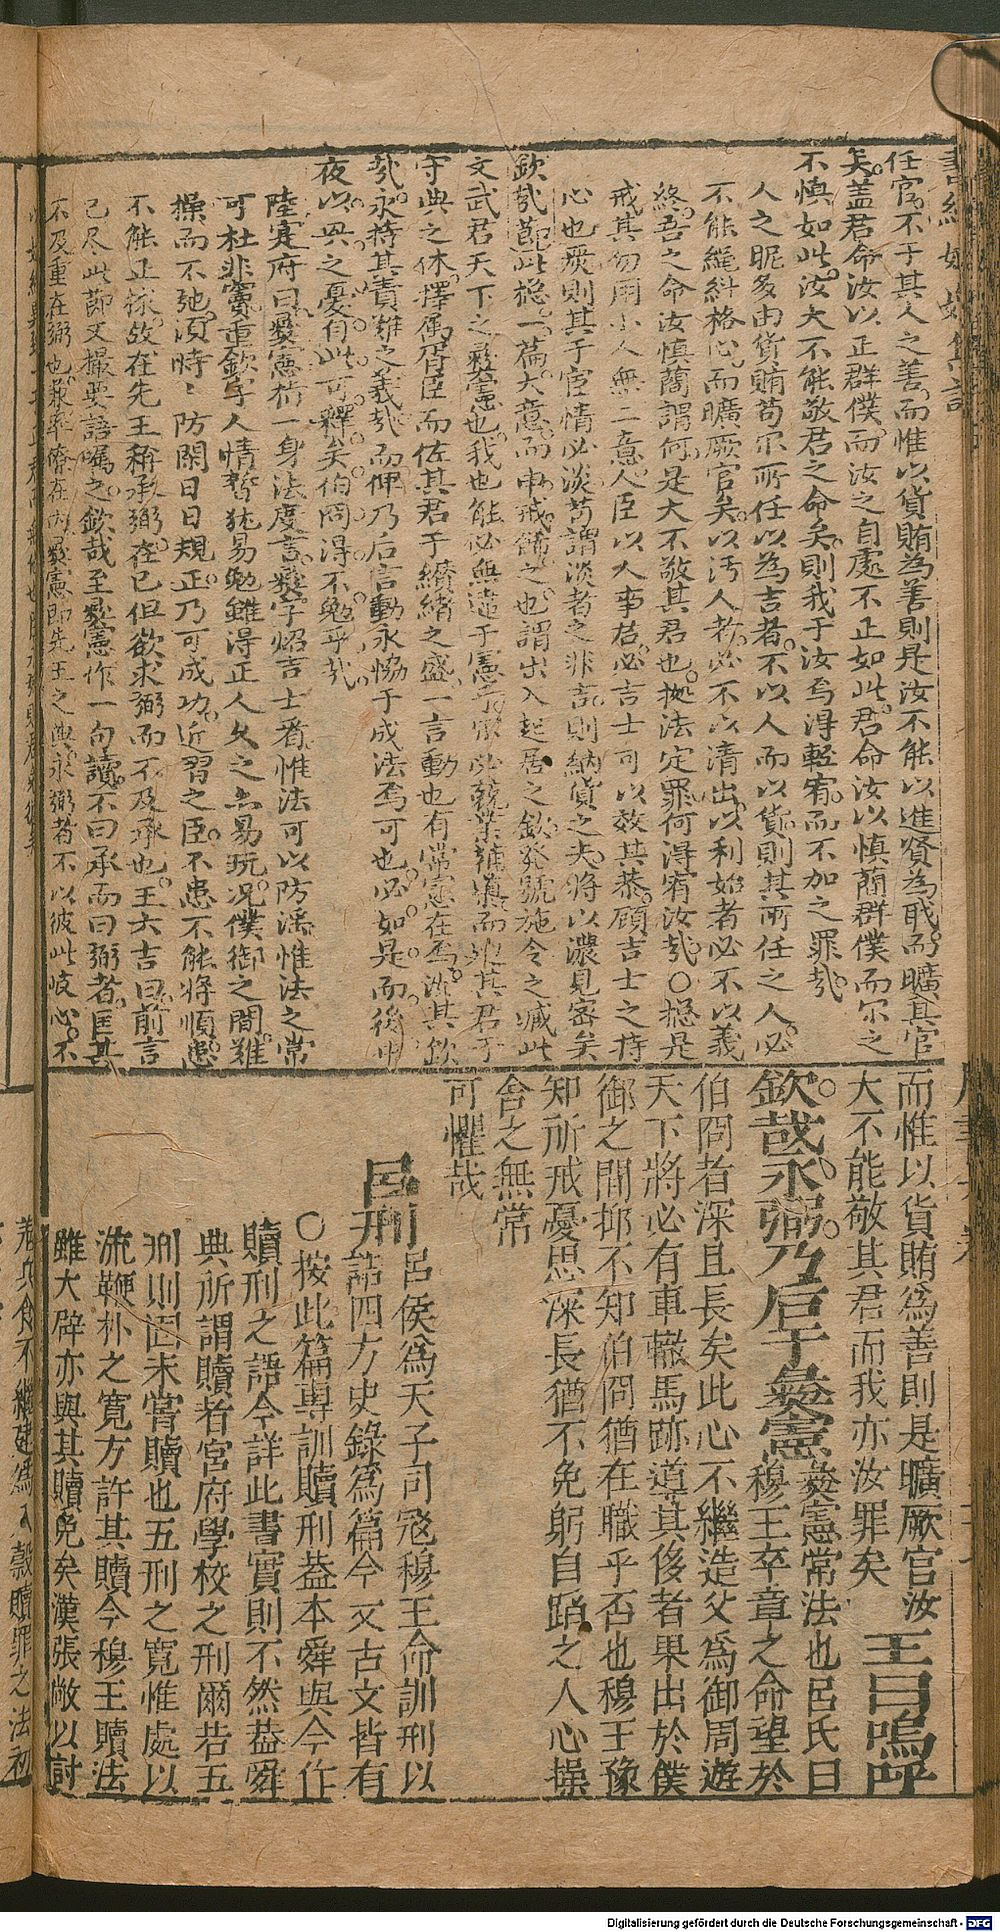 任官不于其人之善而惟以貨賄為善則是汝不能以進賢為職而曠其官
矣蓋君命汝以正群僕而汝之自處不正如此君命汝以慎蕳群僕而尔之
不慎如此汝大不能敬君之命矣則我于汝焉得輕宥而不加之罪哉
人之昵多由貨賄苟尔所任以為吉者不以人而以貨則其所任之人必
不能繩糾格心而曠厥官矣以汚人者必不以清出以利始者必不以義
終吾之命汝慎蕳謂何是大不敬其君也拠法定罪何得宥汝哉○揔是
戒其勿用小人無二意人臣以人事君必吉士可以效其恭顧吉士之持
心也廉則其于宦情必淡苟謂淡者之非吉則納貨之夫將以濃見密矣
欽哉節此揔一篇大意而申戒飭之也謂出入起居之欽發號施令之臧此
文武君天下之彝憲也我也能必無違于憲
守典之休擇厲胥臣而佐其君于纘緒之盛一言動也有常憲在焉汝其欽
哉永持其責難之義哉而俾乃后言動永恊于成法焉可也必如是而後
夜以思之憂有此可釋矣伯冏得不勉乎哉
陸寔府曰彝憲指一身法度言彝字炤吉士看惟法可以防滛惟法之常
可杜非竇重欽字人情暫犹易勉雖得正人久之亦易玩况僕御之間難
操而不弛須時〻防閑日日規正乃可成功近習之臣不患不能將順患
不能正捄故在先王稱承弼在已但欲求弼而不及承也王六吉曰前言
已尽此節又撮要語嘱之欽哉至彝憲作一句讀不曰承而曰弼者匡其
不及重在弼也
而惟以貨賄爲善則是曠厥官汝
大不能敬其君而我亦汝罪矣　王曰嗚呼
欽哉永弼乃后于彝憲彝憲常法也呂氏曰穆王卒章之命望於
伯冏者深且長矣此心不繼造父爲御周遊
天下將必有車轍馬跡導其侈者果出於僕
御之間抑不知伯冏猶在職乎否也穆王豫
知所戒憂思深長猶不免躬自蹈之人心操
舍之無常
可懼哉
呂刑呂侯爲天子司宼穆王命訓刑以詰四方史錄爲篇今文古文皆有
○按此篇專訓贖刑葢本舜典今作
贖刑之語今詳此書實則不然葢舜
典所謂贖者官府學校之刑爾若五
刑則固未嘗贖也五刑之寛惟處以
流鞭朴之寛方許其贖今穆王贖法
雖大辟亦與其贖免矣漢張敞以討
羌兵食不繼建爲入穀贖罪之法初
Digitalisierung gefördert durch die Deutsche Forschungsgemeinschaft - DFG